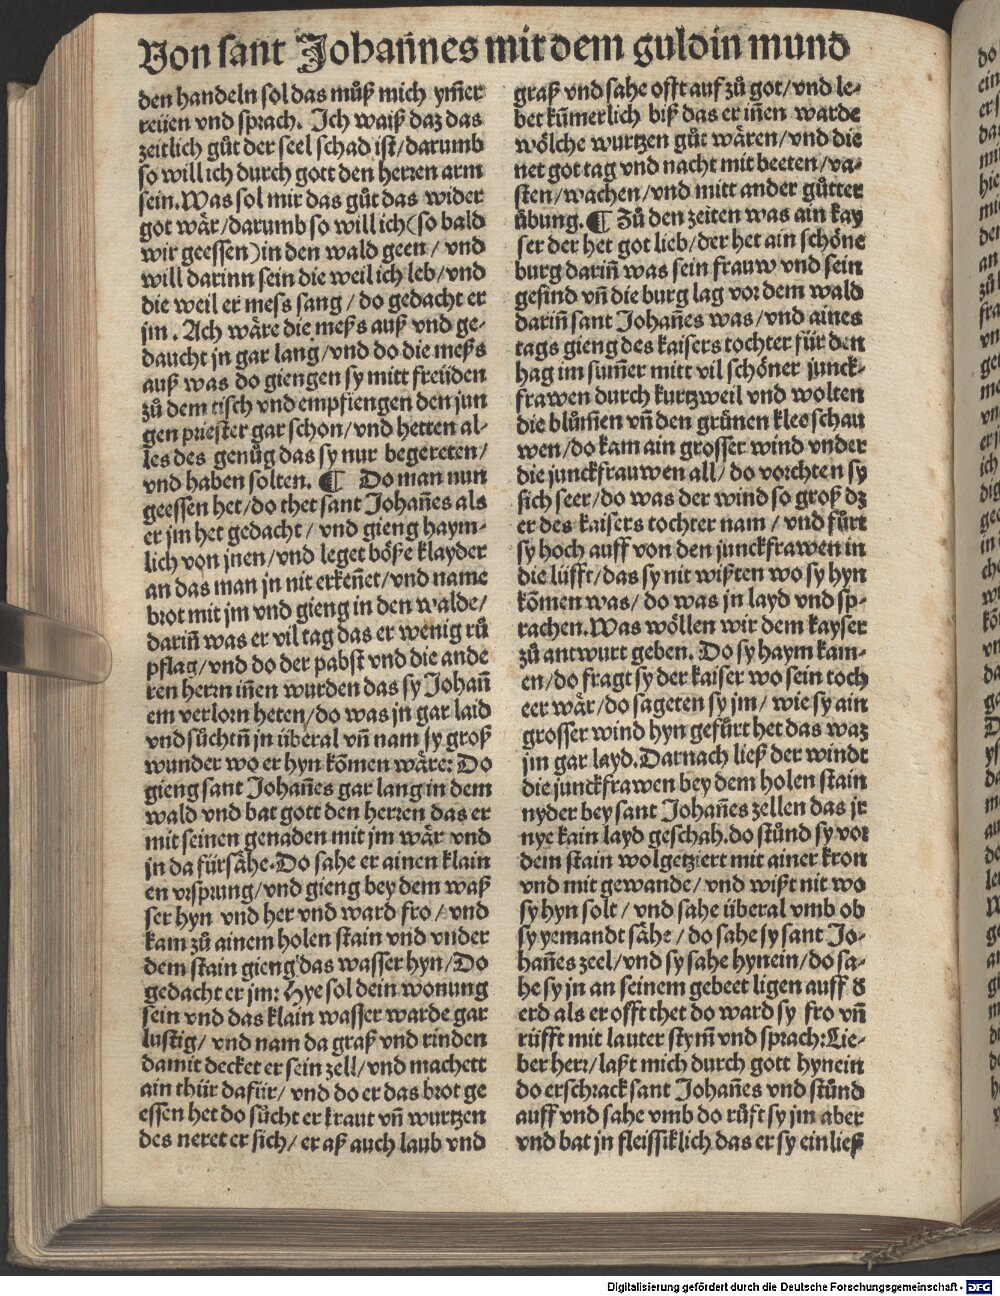 Von sant Johañnes mit dem guldin mund
den handeln sol das můß mich ym̃er
reüen vnd sprach. Ich waiß daz das
zeitlich gůt der seel schad ist/darumb
so will ich durch gott den herren arm
sein. Was sol mir das gůt das wider
got wär/darumb so will ich(so bald
wir geessen)in den wald geen/ vnd
will darinn sein die weil ich leb/vnd
die weil er mess sang/ do gedacht er
jm. Ach wäre die meß auß vnd ge-
daucht jn gar lang/vnd do die meß
auß was do giengen sy mitt freüden
zů dem tisch vnd empfiengen den jun
gen priester gar schon/vnd hetten al-
les des genůg das sy nur begereten/
vnd haben solten. ¶ Do man nun
geessen het/do thet sant Johañes als
er jm het gedacht/ vnd gieng haym-
lich von jnen/vnd leget böße klayder
an das man jn nit erkeñet/vnd name
brot mit jm vnd gieng in den walde/
dariñ was er vil tag das er wenig rů
pflag/vnd do der pabst vnd die ande
ren herrn iñen wurden das sy Johañ
em verlorn heten/do was jn gar laid
vnd sůchtñ jn überal vñ nam sy groß
wunder wo er hyn kõmen wäre: Do
gieng sant Johañes gar lang in dem
wald vnd bat gott den herren das er
mit seinen genaden mit jm wär vnd
jn da fürsähe. Do sahe er ainen klain
en vrsprung/vnd gieng bey dem waß
ser hyn vnd her vnd ward fro/ vnd
kam zů ainem holen stain vnd vnder
dem stain gieng das wasser hyn/Do
gedacht er jm: Hye sol dein wonung
sein vnd das klain wasser warde gar
lustig/ vnd nam da graß vnd rinden
damit decket er sein zell/vnd machett
ain thür dafür/ vnd do er das brot ge
essen het do sůcht er kraut vñ wurtzen
des neret er sich/ er aß auch laub vnd
graß vnd sahe offt auf zů got/vnd le-
bet kům̃erlich biß das er iñen warde
wölche wurtzen gůt wären/vnd die
net got tag vnd nacht mit beeten/va-
sten/wachen/vnd mitt ander gůtter
übung. ¶ Zů den zeiten was ain kay
ser der het got lieb/der het ain schöne
burg dariñ was sein frauw vnd sein
gesind vñ die burg lag vor dem wald
dariñ sant Johañes was/vnd aines
tags gieng des kaisers tochter für den
hag im sum̃er mitt vil schöner junck-
frawen durch kurtzweil vnd wolten
die blům̃en vñ den grünen klee schau
wen/do kam ain grosser wind vnder
die junckfrauwen all/ do vorchten sy
sich seer/do was der wind so groß dz
er des kaisers tochter nam/ vnd fürt
sy hoch auff von den junckfrawen in
die lüfft/das sy nit wißten wo sy hyn
kõmen was/ do was jn layd vnd sp-
rachen. Was wöllen wir dem kayser
zů antwurt geben. Do sy haym kam-
en/do fragt sy der kaiser wo sein toch
eer wär/do sageten sy jm/ wie sy ain
grosser wind hyn gefürt het das waz
jm gar layd. Darnach ließ der windt
die junckfrawen bey dem holen stain
nyder bey sant Johañes zellen das jr
nye kain layd geschah. do stůnd sy vor
dem stain wolgetziert mit ainer kron
vnd mit gewande/ vnd wißt nit wo
sy hyn solt/ vnd sahe überal vmb ob
sy yemandt sähe/ do sahe sy sant Jo-
hañes zeel/vnd sy sahe hynein/do sa-
he sy jn an seinem gebeet ligen auff d̕
erd als er offt thet do ward sy fro vñ
rüfft mit lauter stym̃ vnd sprach: Lie-
ber herr/laßt mich durch gott hynein
do erschrack sant Johañes vnd stůnd
auff vnd sahe vmb do růft sy jm aber
vnd bat jn fleissiklich das er sy einließ
Digitalisierung gefördert durch die Deutsche Forschungsgemeinschaft - DFG